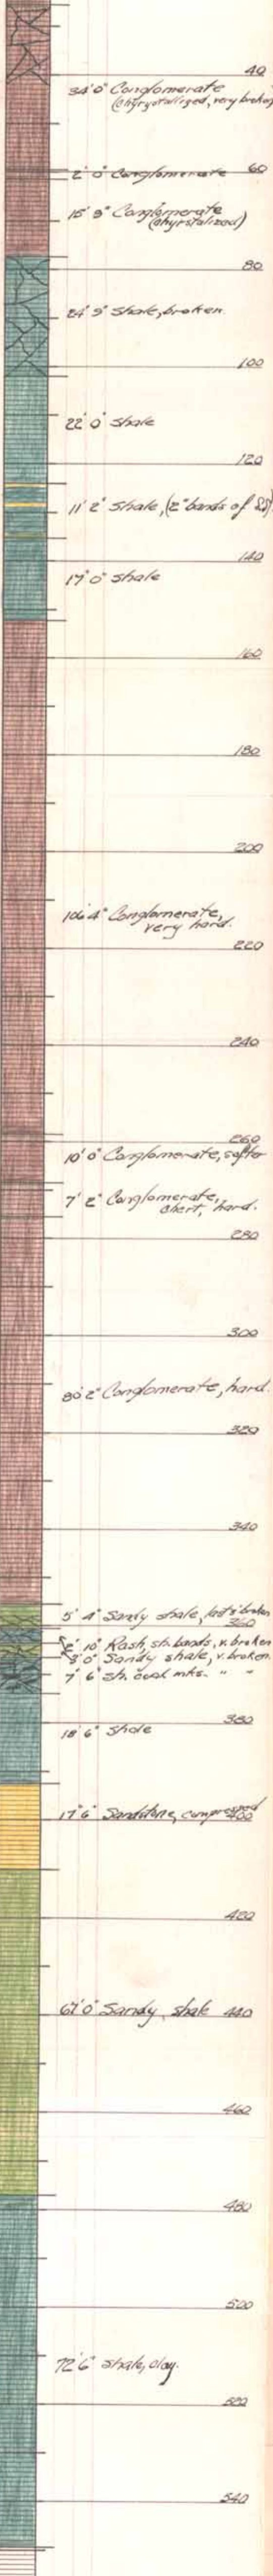 40
34' 0" Conglomerate
(chyrstallized, very broken)
2' 0" Conglomerate 60
15' 9" Conglomerate
(chyrstalized)
80
24' 9" Shale, broken.
100
22' 0" Shale
120
11' 2" Shale, (2" bands of SS)
140
17' 0" Shale
160
180
200
106' 4" Conglomerate,
very hard.
220
240
260
10' 0" Conglomerate, softer
7' 2" Conglomerate,
chert, hard.
280
300
80' 2" Conglomerate, hard.
320
340
5' 4" Sandy shale, last 2' broken
360
10" Rash, sh. bands, v. broken
3' 0" Sandy shale, v. broken.
7' 6" sh. coal mks. " "
380
18' 6" Shale
17' 6" Sandstone, compressed
400
420
67' 0" Sandy, shale 440
460
480
500
72' 6" Shale, clay.
520
540